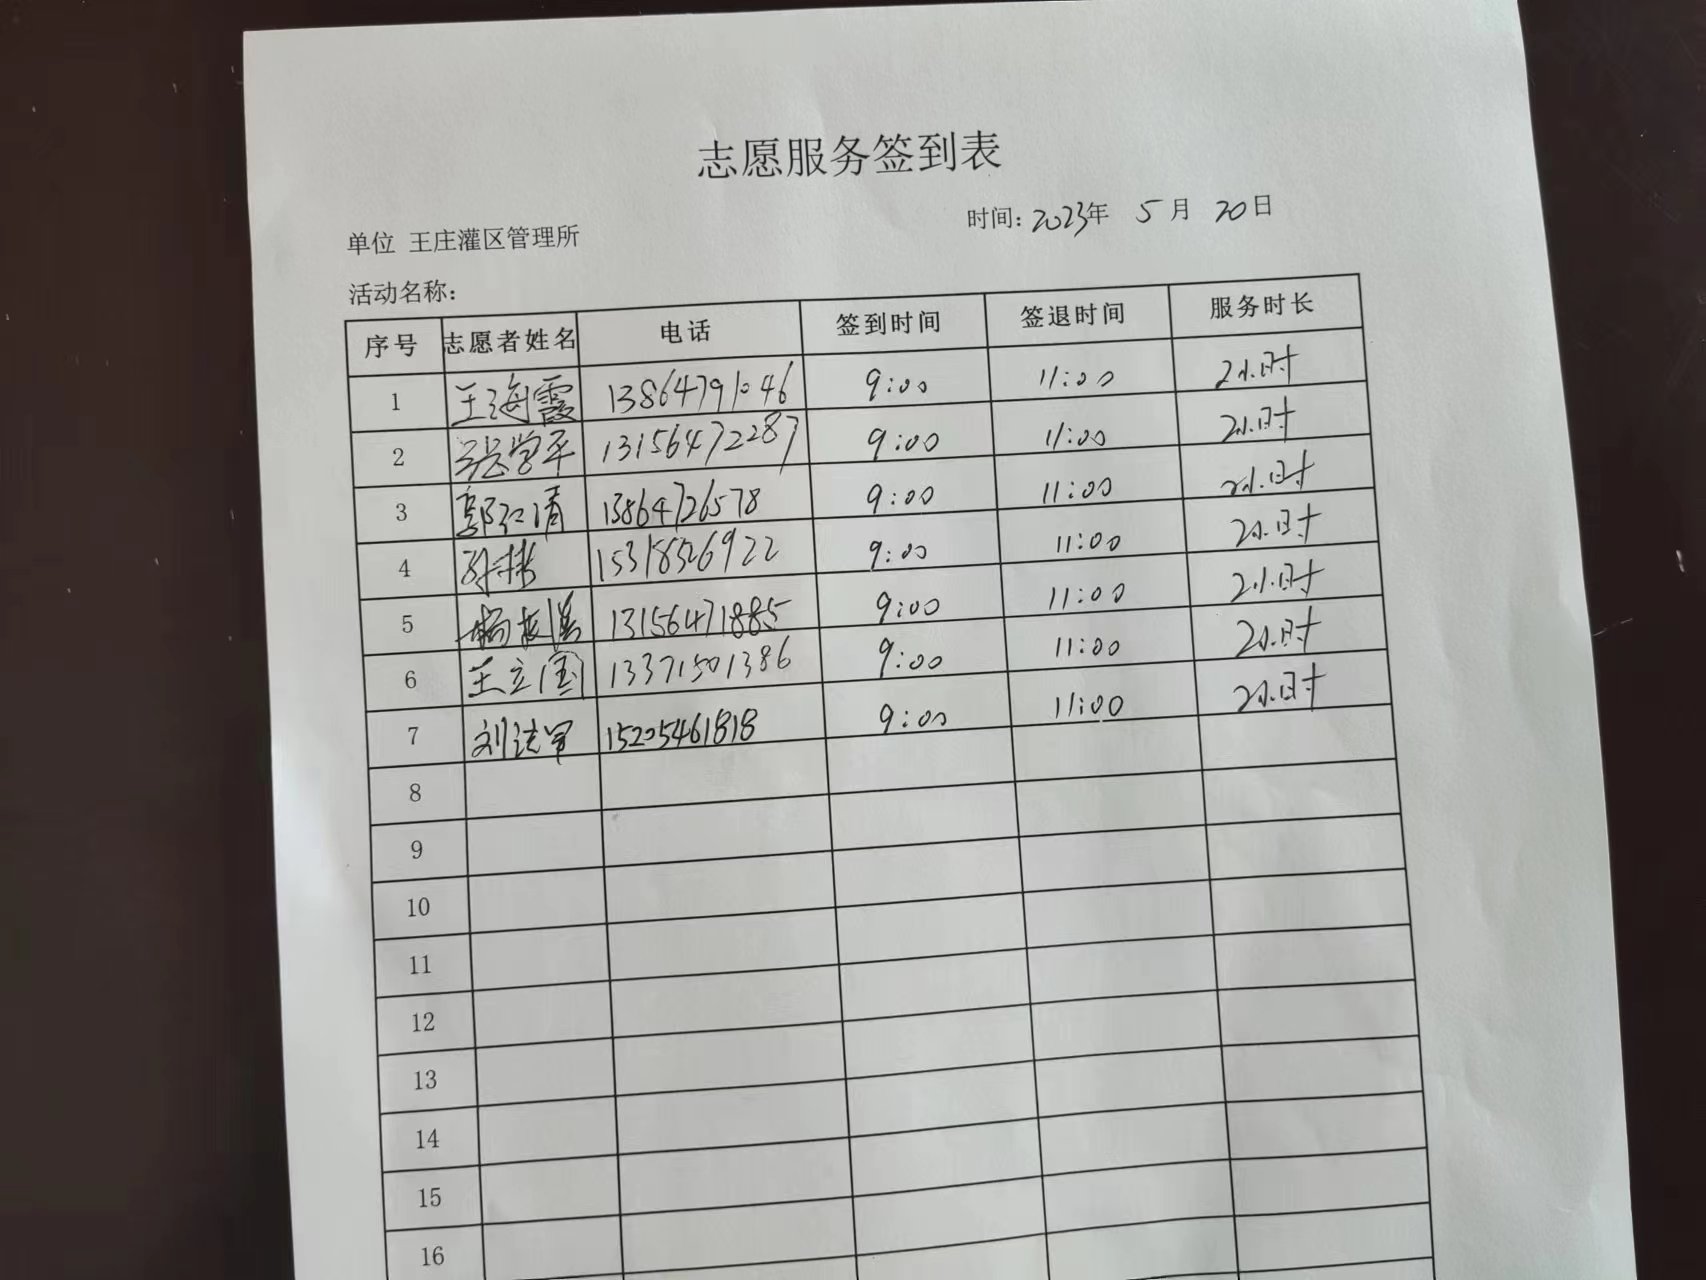 志愿服务签到表
单位 王庄灌区管理所 时间: 2023年 5月 20日
活动名称:
序号 志愿者姓名 电话 签到时间 签退时间 服务时长
1 王海霞 13864791046 9:00 11:00 2小时
2 张学平 13156472287 9:00 11:00 2小时
3 郭红清 13864726578 9:00 11:00 2小时
4 孙林 15318526922 9:00 11:00 2小时
5 杨 13156471885 9:00 11:00 2小时
6 王立国 13371501386 9:00 11:00 2小时
7 刘法军 15205461818 9:00 11:00 2小时
8
9
10
11
12
13
14
15
16